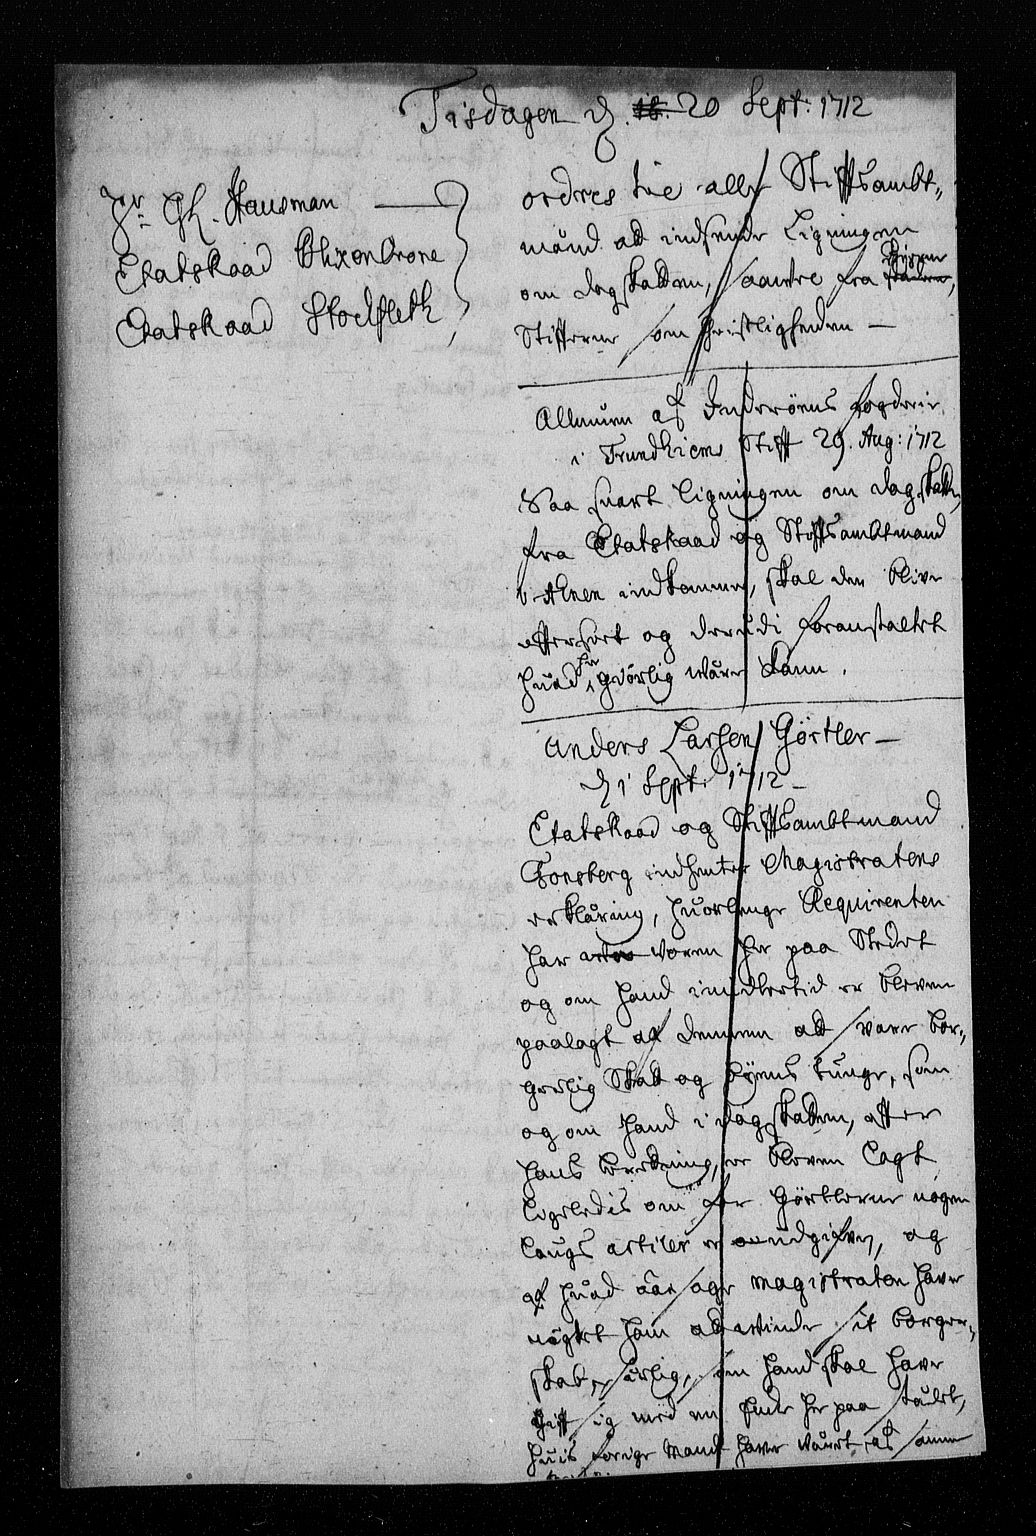 Tisdagen d. 20 Sept: 1712
Hr. Gh. Hausman
Etatsraad Blixencrone
Etatsraad Stockfleth
ordres til alle Stiftsambt-
mænd at indsende Ligningen
om dagskatten, saavel fra Byerne
Stifterne som Geistligheden
Allmuen af Inderöens fogderie
i Trundhiems Stift 29. Aug: 1712
Saa snart ligningen om dagskatten
fra Etatsraad og Stiftsambtmand
v. Ahnen indkommer, skal den blive
efterseet og derudi foranstaltet
huad her giörlig være kann.
Anders Larsen Görtler
d. 1 Sept. 1712
Etatsraad og Stiftsambtmand
Tonsberg indhenter Magistratens
erklæring, huorlenge Requirenten
har voren her paa Stedet
og om hand imidlertid er bleven
paalagt af dennem at svare bor-
gerlig Skat og byens tunge, som
og om hand i dagskatten, efter
hans beretning, er bleven lagt,
ligeledis om for Görtlerne nogen
laugs artikler er udgifven, og
af huad aarsage magistraten haver
nægtet ham at vinde sit borger-
skab, særlig, som hand skal have
gift sig med en Encke her paa Stædet,
huis forige Mand haver været af samme